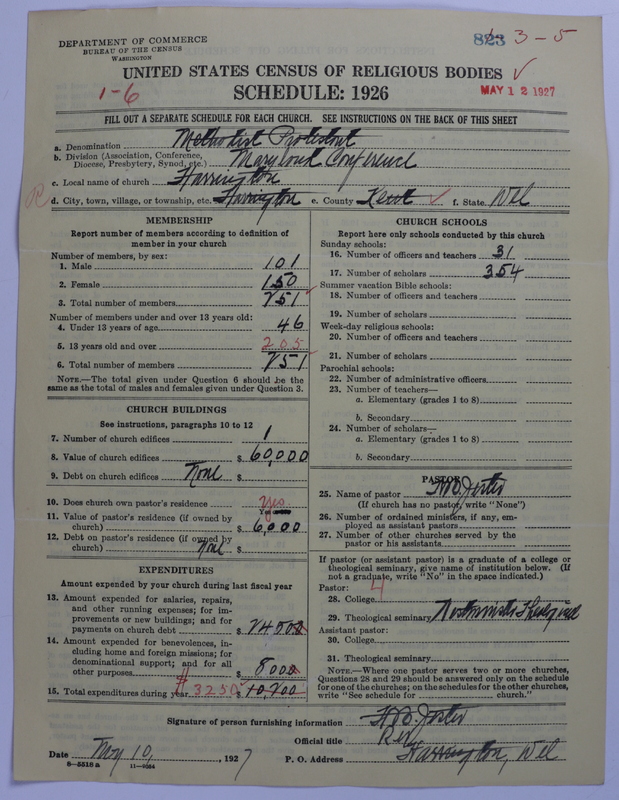 DEPARTMENT OF COMMERCE
BUREAU OF THE CENSUS
WASHINGTON
823 3-5
UNITED STATES CENSUS OF RELIGIOUS BODIES
1-6
SCHEDULE: 1926
MAY 12 1927
FILL OUT A SEPARATE SCHEDULE FOR EACH CHURCH. SEE INSTRUCTIONS ON THE BACK OF THIS SHEET
a. Denomination Methodist Protestant
b. Division (Association, Conference, Diocese, Presbytery, Synod, etc.) Maryland Conference
c. Local name of church Harrington
d. City, town, village, or township, etc. Harrington e. County Kent f. State Del
MEMBERSHIP
Report number of members according to definition of
member in your church
Number of members, by sex:
1. Male 101
2. Female 150
3. Total number of members 251
Number of members under and over 13 years old:
4. Under 13 years of age 46
5. 13 years old and over 205
6. Total number of members 251
NOTE.—The total given under Question 6 should be the
same as the total of males and females given under Question 3.
CHURCH BUILDINGS
See instructions, paragraphs 10 to 12
7. Number of church edifices 1
8. Value of church edifices $ 60,000
9. Debt on church edifices None $
10. Does church own pastor's residence yes
11. Value of pastor's residence (if owned by
church) $ 6,000
12. Debt on pastor's residence (if owned by
church) None $
EXPENDITURES
Amount expended by your church during last fiscal year
13. Amount expended for salaries, repairs,
and other running expenses; for im-
provements or new buildings; and for
payments on church debt $
14. Amount expended for benevolences, in-
cluding home and foreign missions; for
denominational support; and for all
other purposes $
15. Total expenditures during year $ 3250 $
CHURCH SCHOOLS
Report here only schools conducted by this church
Sunday schools:
16. Number of officers and teachers 31
17. Number of scholars 354
Summer vacation Bible schools:
18. Number of officers and teachers
19. Number of scholars
Week-day religious schools:
20. Number of officers and teachers
21. Number of scholars
Parochial schools:
22. Number of administrative officers
23. Number of teachers—
a. Elementary (grades 1 to 8)
b. Secondary
24. Number of scholars—
a. Elementary (grades 1 to 8)
b. Secondary
PASTOR
25. Name of pastor
(If church has no pastor, write "None")
26. Number of ordained ministers, if any, em-
ployed as assistant pastors
27. Number of other churches served by the
pastor or his assistants
If pastor (or assistant pastor) is a graduate of a college or
theological seminary, give name of institution below. (If
not a graduate, write "No" in the space indicated.)
Pastor:
28. College 4
29. Theological seminary
Assistant pastor:
30. College
31. Theological seminary
NOTE.—Where one pastor serves two or more churches,
Questions 28 and 29 should be answered only on the schedule
for one of the churches; on the schedules for the other churches,
write "See schedule for church."
Signature of person furnishing information
Official title Rev
Date May 10, 1927 P. O. Address Harrington, Del
8-5518 a 11-9034